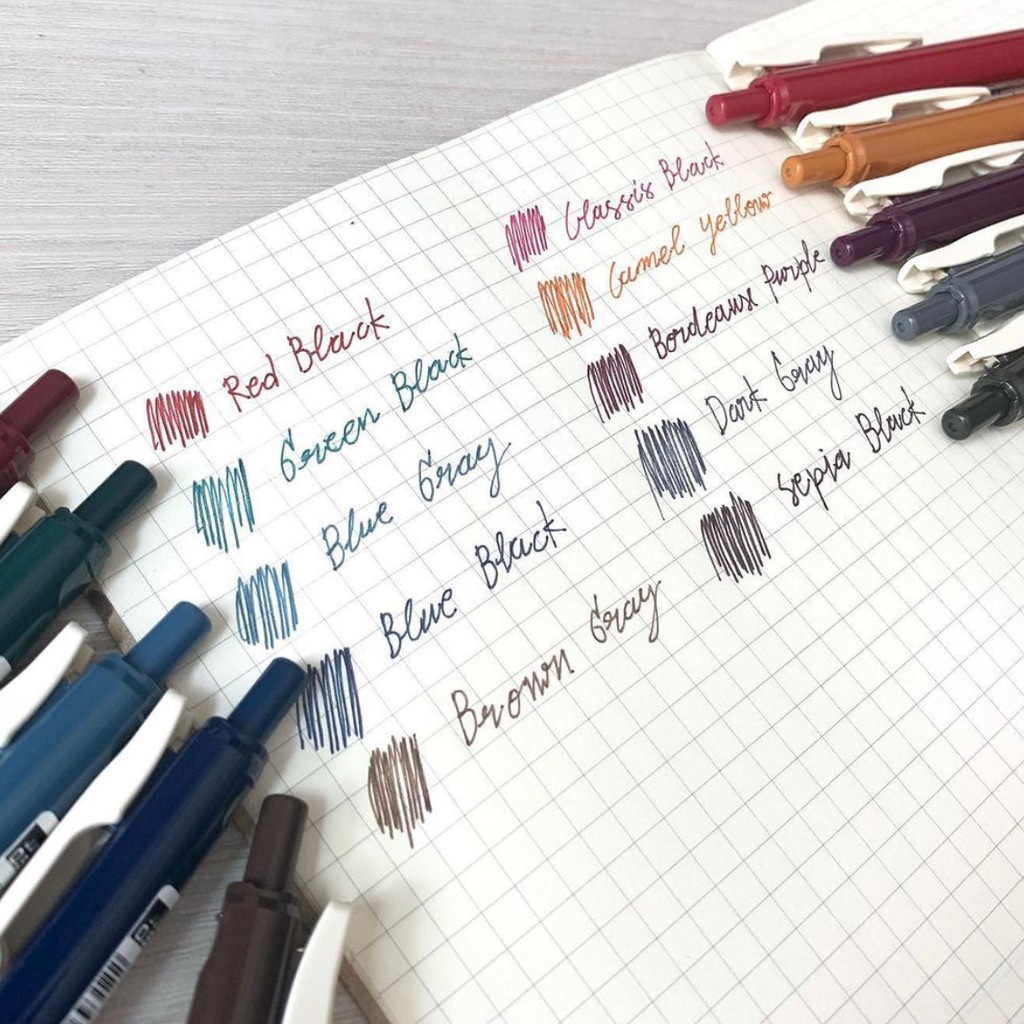 Red Black
Green Black
Blue Gray
Blue Black
Brown Gray
Glassis Black
Camel Yellow
Bordeause Purple
Dark Gray
Sepia Black